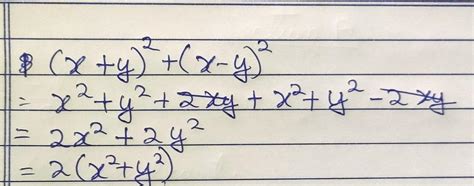 (x+y)² + (x-y)²
= x² + y² + 2xy + x² + y² - 2xy
= 2x² + 2y²
= 2(x² + y²)